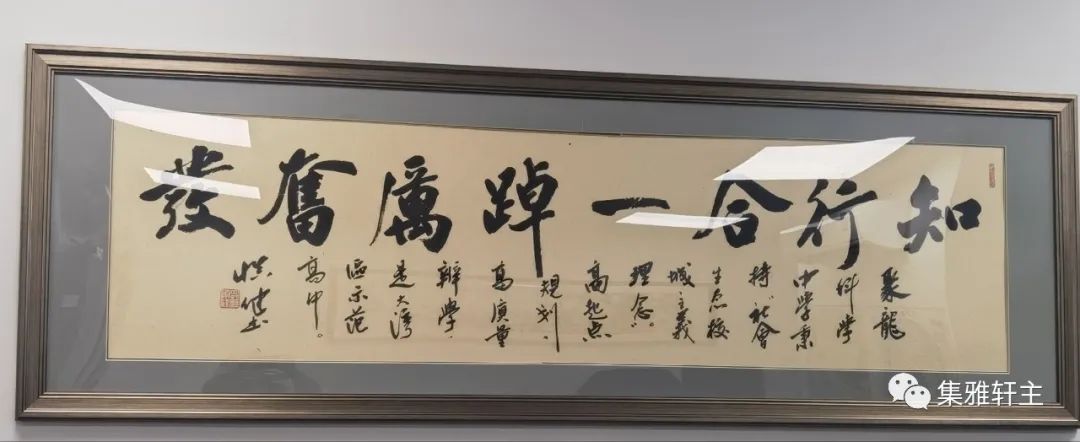 知行合一踔厲奮發
聚龍
科学
中學秉
持“社會
生态校
城主義
理念”，
高起点
規划、
高质量
辦学，
是大湾
區示范
高中。
集雅轩主